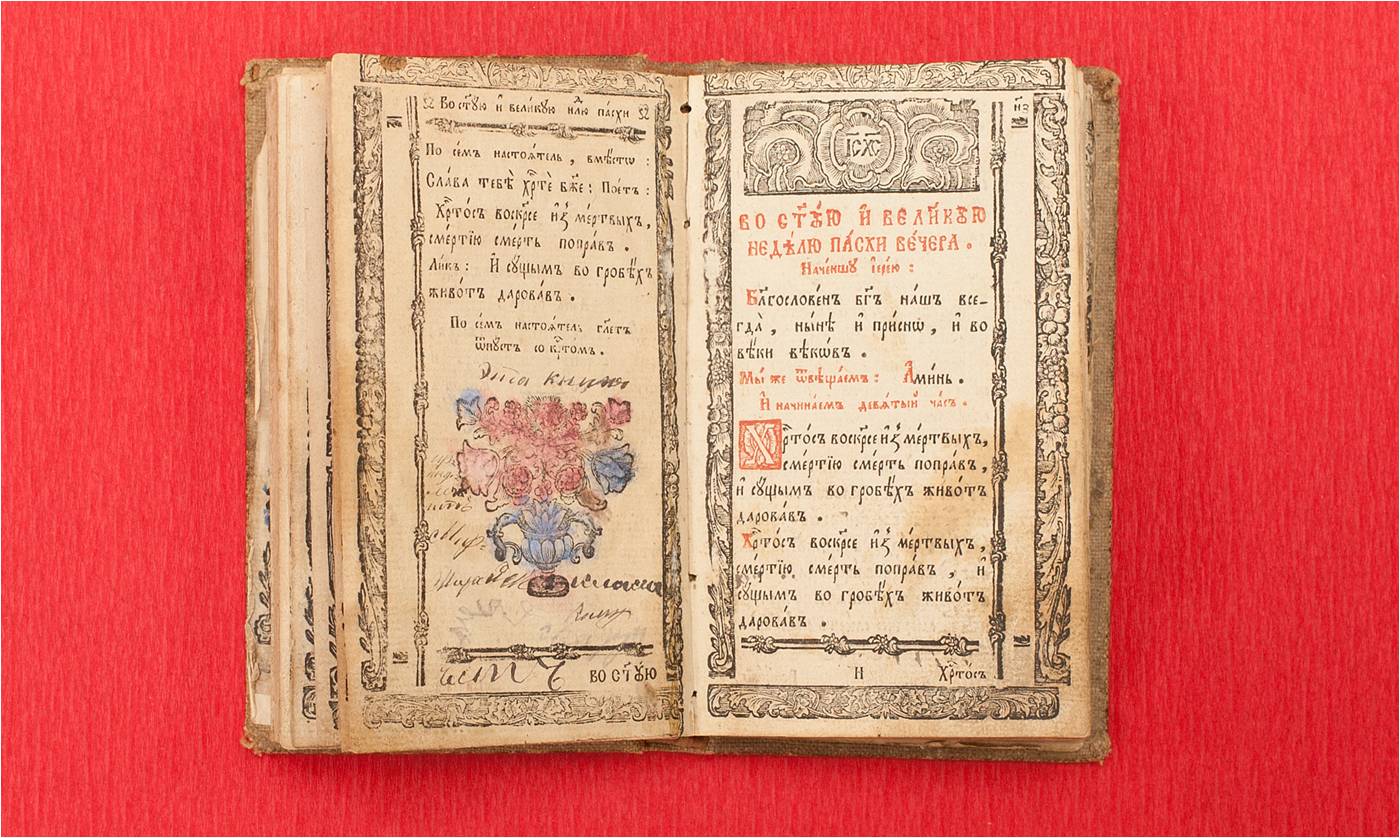 Во ст҃ꙋю и҆ великꙋю нлю пасхи
По се́мъ настоѧ́тель , вмѣ́стѡ :
Сла́ва тебѣ̀ хр҃тѐ бж҃е : Пое́тъ :
Хр҃то́съ воскр҃се и҆з̾ ме́ртвыхъ,
сме́ртїю сме́рть попра́въ .
Ли́къ : И҆ сꙋ́щымъ во гробѣ́хъ
живо́тъ дарова́въ .
По се́мъ настоѧ́тель гл҃етъ
ѿпꙋстъ со крⷭ҇то́мъ .
Эта книга
есть
во ст҃ꙋ́ю
І҃С Х҃С
ВО СТ҃Ꙋ́Ю И҆ ВЕЛИ́КꙊЮ
НЕДѢ́ЛЮ ПА́СХИ ВЕ́ЧЕРА .
Наче́ншꙋ і҆ере́ю :
Бл҃гослове́нъ бг҃ъ на́шъ все-
гда̀ , ны́нѣ и҆ при́снѡ , и҆ во
вѣ́ки вѣкѡ́въ .
Мы́ же ѿвѣща́емъ : А҆ми́нь .
И҆ начина́емъ девѧ́тый ча́съ .
Хр҃то́съ воскр҃се и҆з̾ ме́ртвыхъ,
сме́ртїю сме́рть попра́въ ,
и҆ сꙋ́щымъ во гробѣ́хъ живо́тъ
дарова́въ .
Хр҃то́съ воскр҃се и҆з̾ ме́ртвыхъ ,
сме́ртїю сме́рть попра́въ , и҆
сꙋ́щымъ во гробѣ́хъ живо́тъ
дарова́въ .
Н Хр҃то́съ